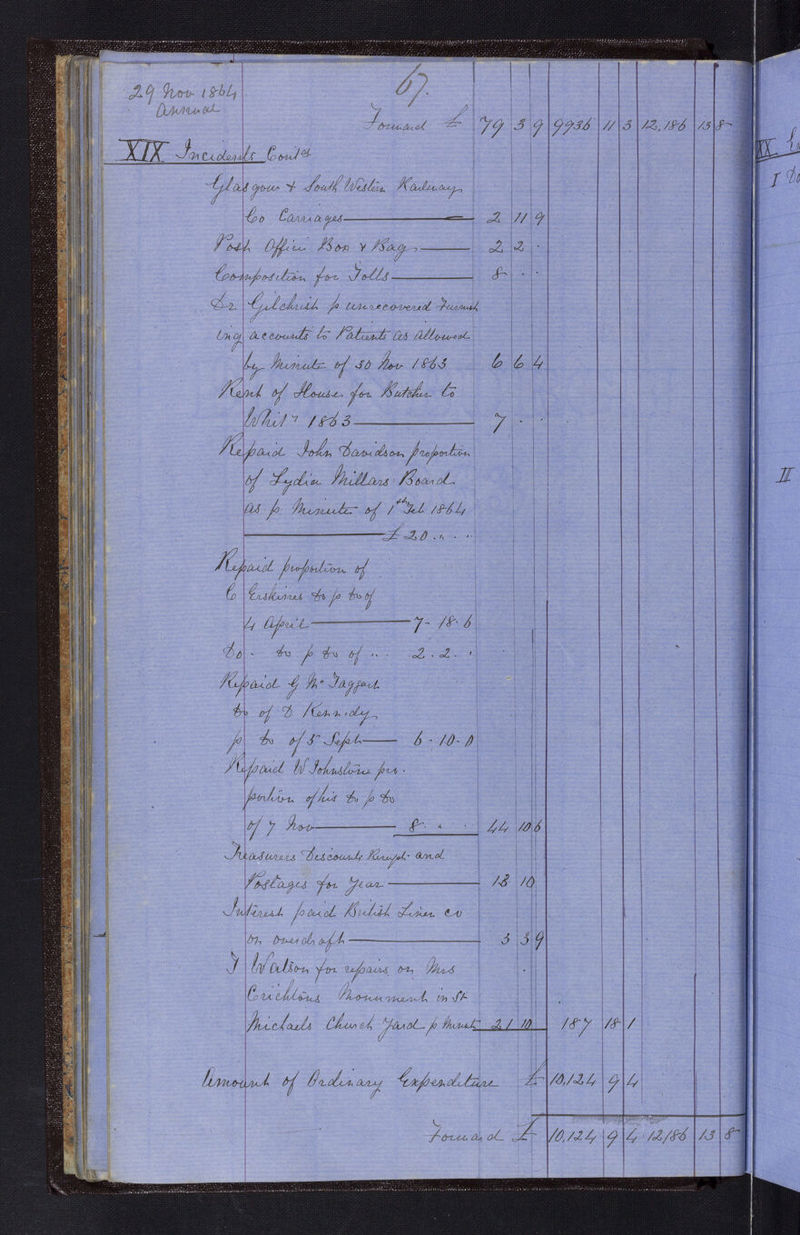 29 Nov 1864
Annual
67.
Forward £ 79 3 9 9936 11 3 12,186 13 8
XIX Incidents Contd
Glasgow & South Western Railway
Co Carriages 2 11 9
Post Office Box & Bag 2 2 .
Composition for Tolls 8 . .
Dr Gilchrist p unrecovered Furnish
ing accounts to Patients as allowed
by Minute of 30 Nov 1863 6 6 4
Rent of House for Butcher to
Whity 1863 7 . .
Repaid John Davidson proportion
of Lydia Millars Board
as p Minute of 1st Feb 1864
£ 20 . " . "
Repaid proportion of
C Erskines Do p Do of
4 April 7 . 18 . 6
Do . Do p Do of " . 2 . 2 . "
Repaid G McTaggart
Do of D Kennedy
p Do of 5 Sept 6 . 10 . 0
Repaid W Johnstone pro-
portion of his Do p Do
of 7 Nov 8 . " . 44 10 6
Treasurers Discounts Receipt and
Postages for Year 13 10
Interest paid British Linen Co
on overdraft 3 3 9
J Watson for repairs on Mrs
Crichtons Monument in St
Michaels Church Yard p Minute 21 10 187 18 1
Amount of Ordinary Expenditure £ 10,124 9 4
Forward £ 10,124 9 4 12,186 13 8
XX
I Do
II